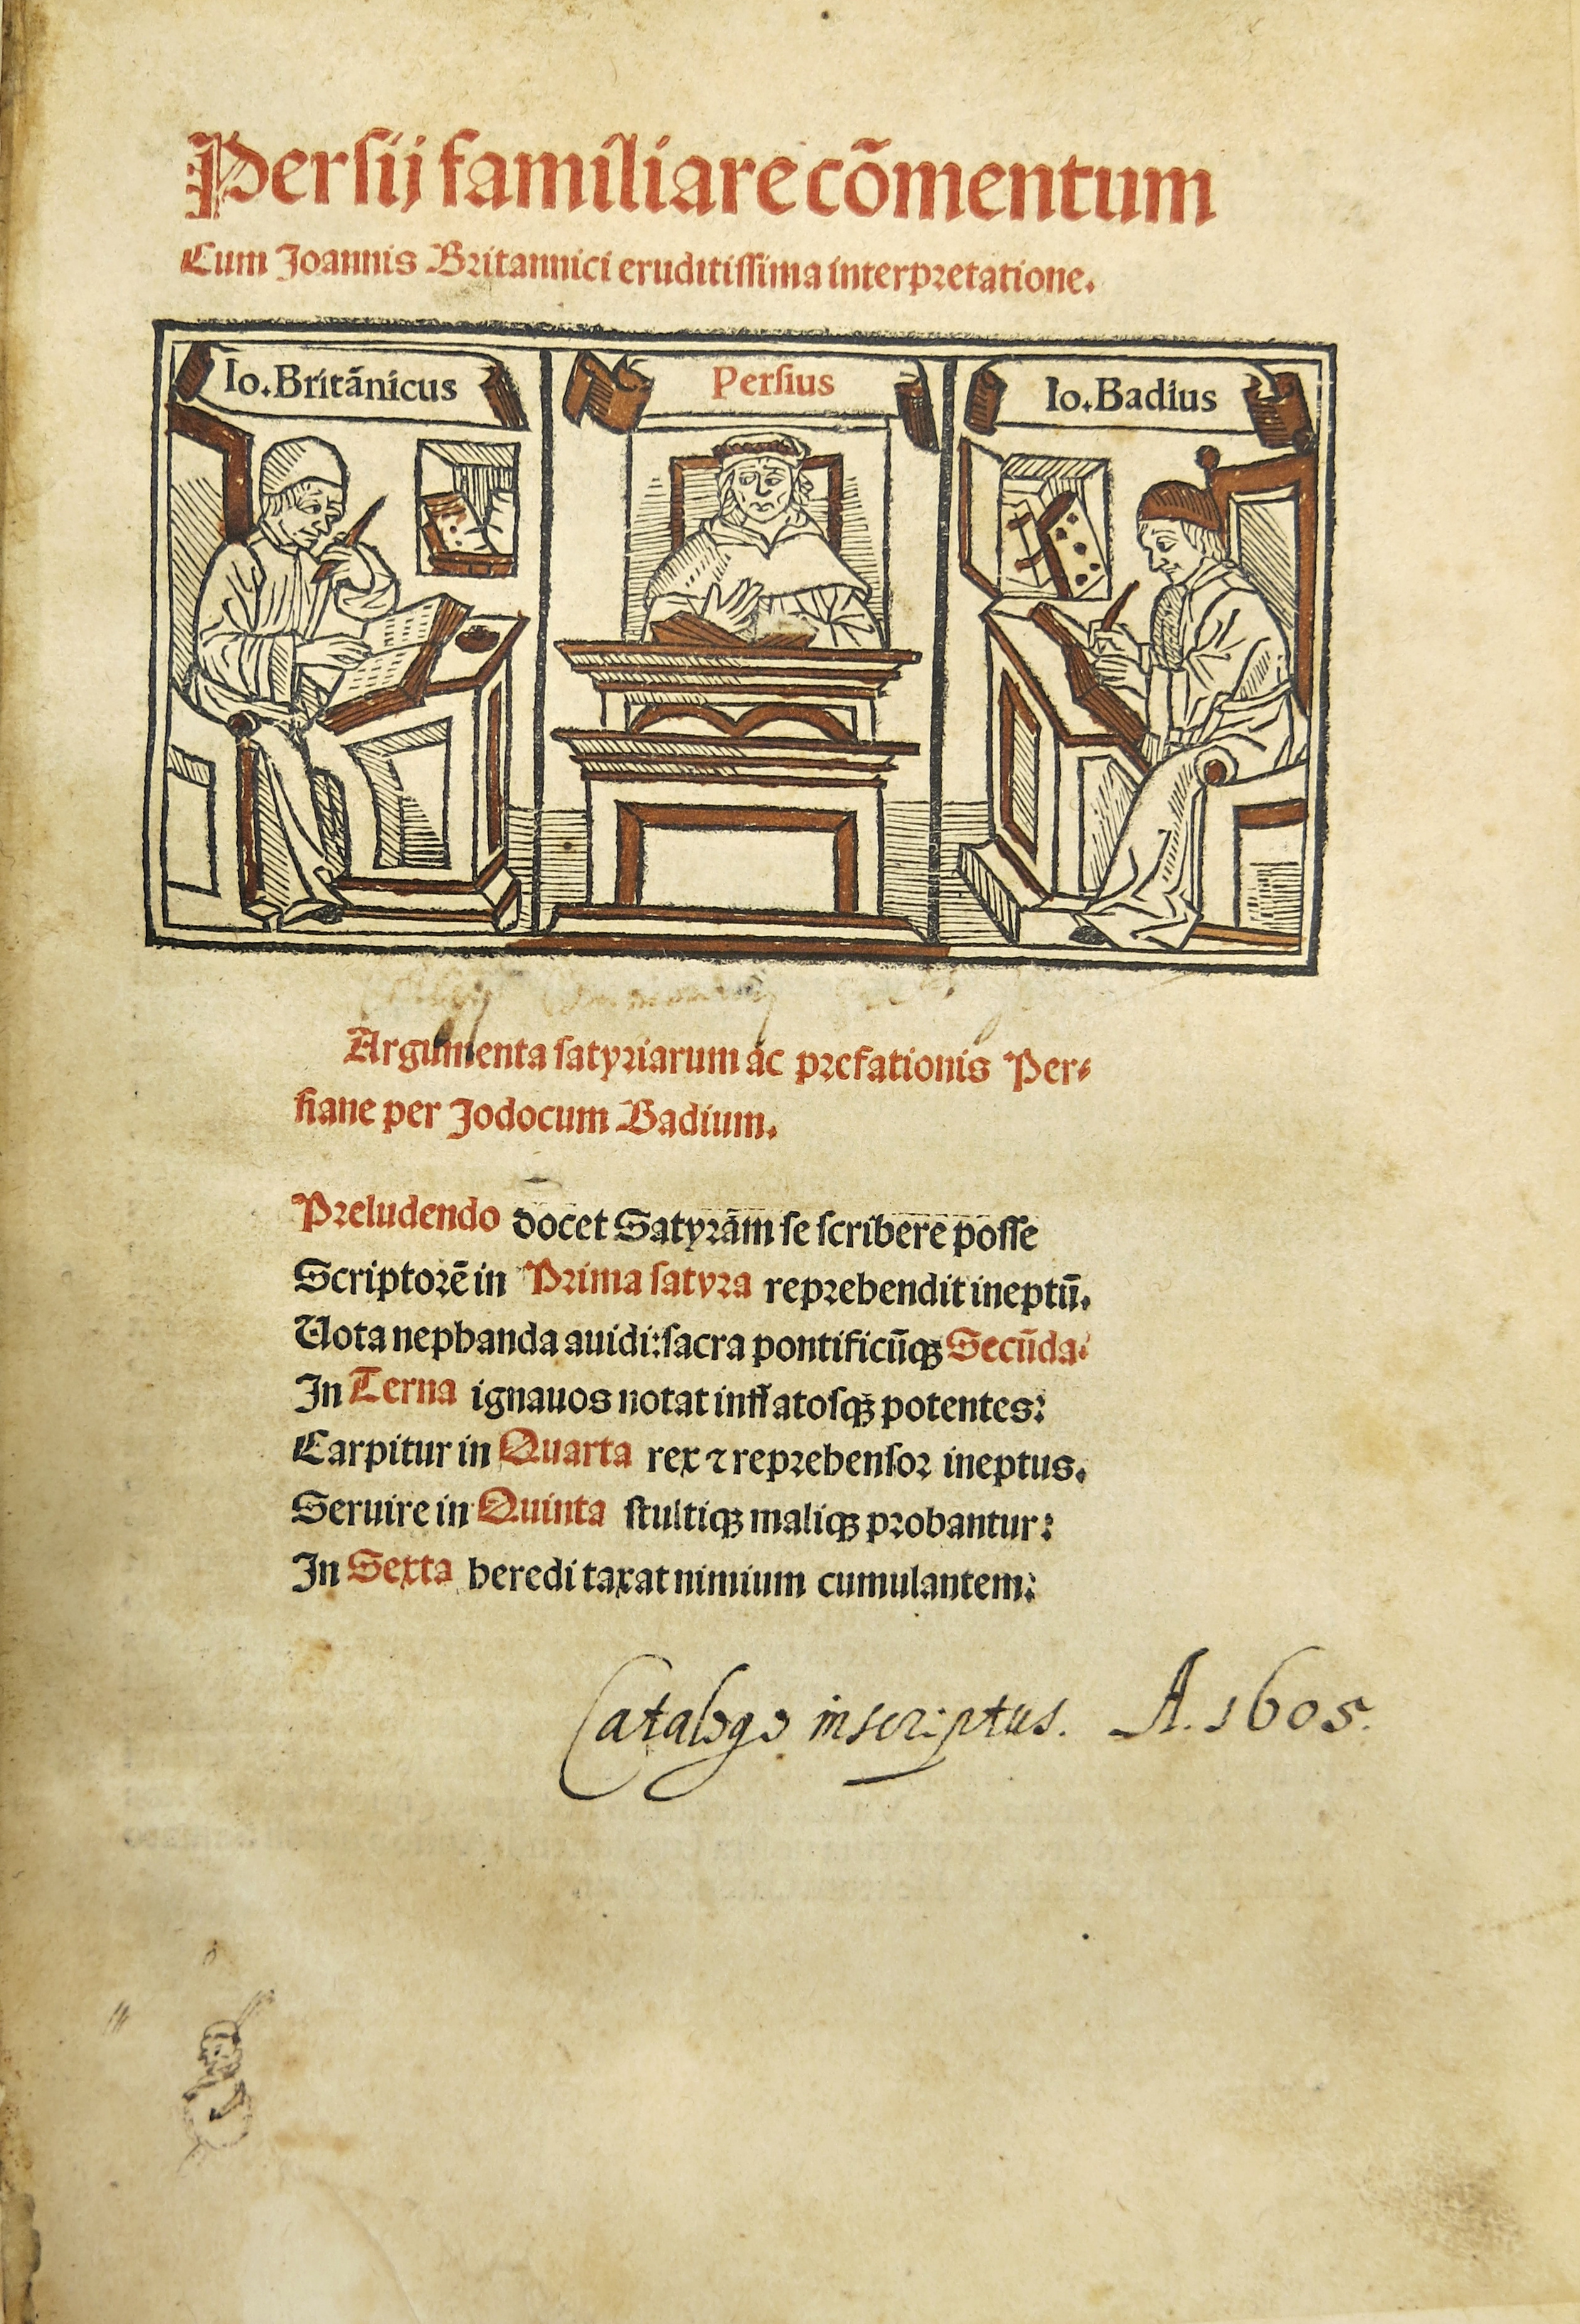 Persij familiare cõmentum
Cum Joannis Britannici eruditissima interpretatione.
Io.Britãnicus
Persius
Io.Badius
Argumenta satyriarum ac prefationis Per⸗
siane per Jodocum Badium.
Preludendo docet Satyrãm se scribere posse
Scriptorẽ in Prima satyra reprehendit ineptũ.
Uota nephanda auidi:sacra pontificũqꝫ Secũda:
In Terna ignauos notat inflatosqꝫ potentes:
Carpitur in Quarta rex ⁊ reprehensor ineptus.
Seruire in Quinta stultiqꝫ maliqꝫ probantur:
In Sexta heredi taxat nimium cumulantem:
Catalogo inscriptus. A. 1605.